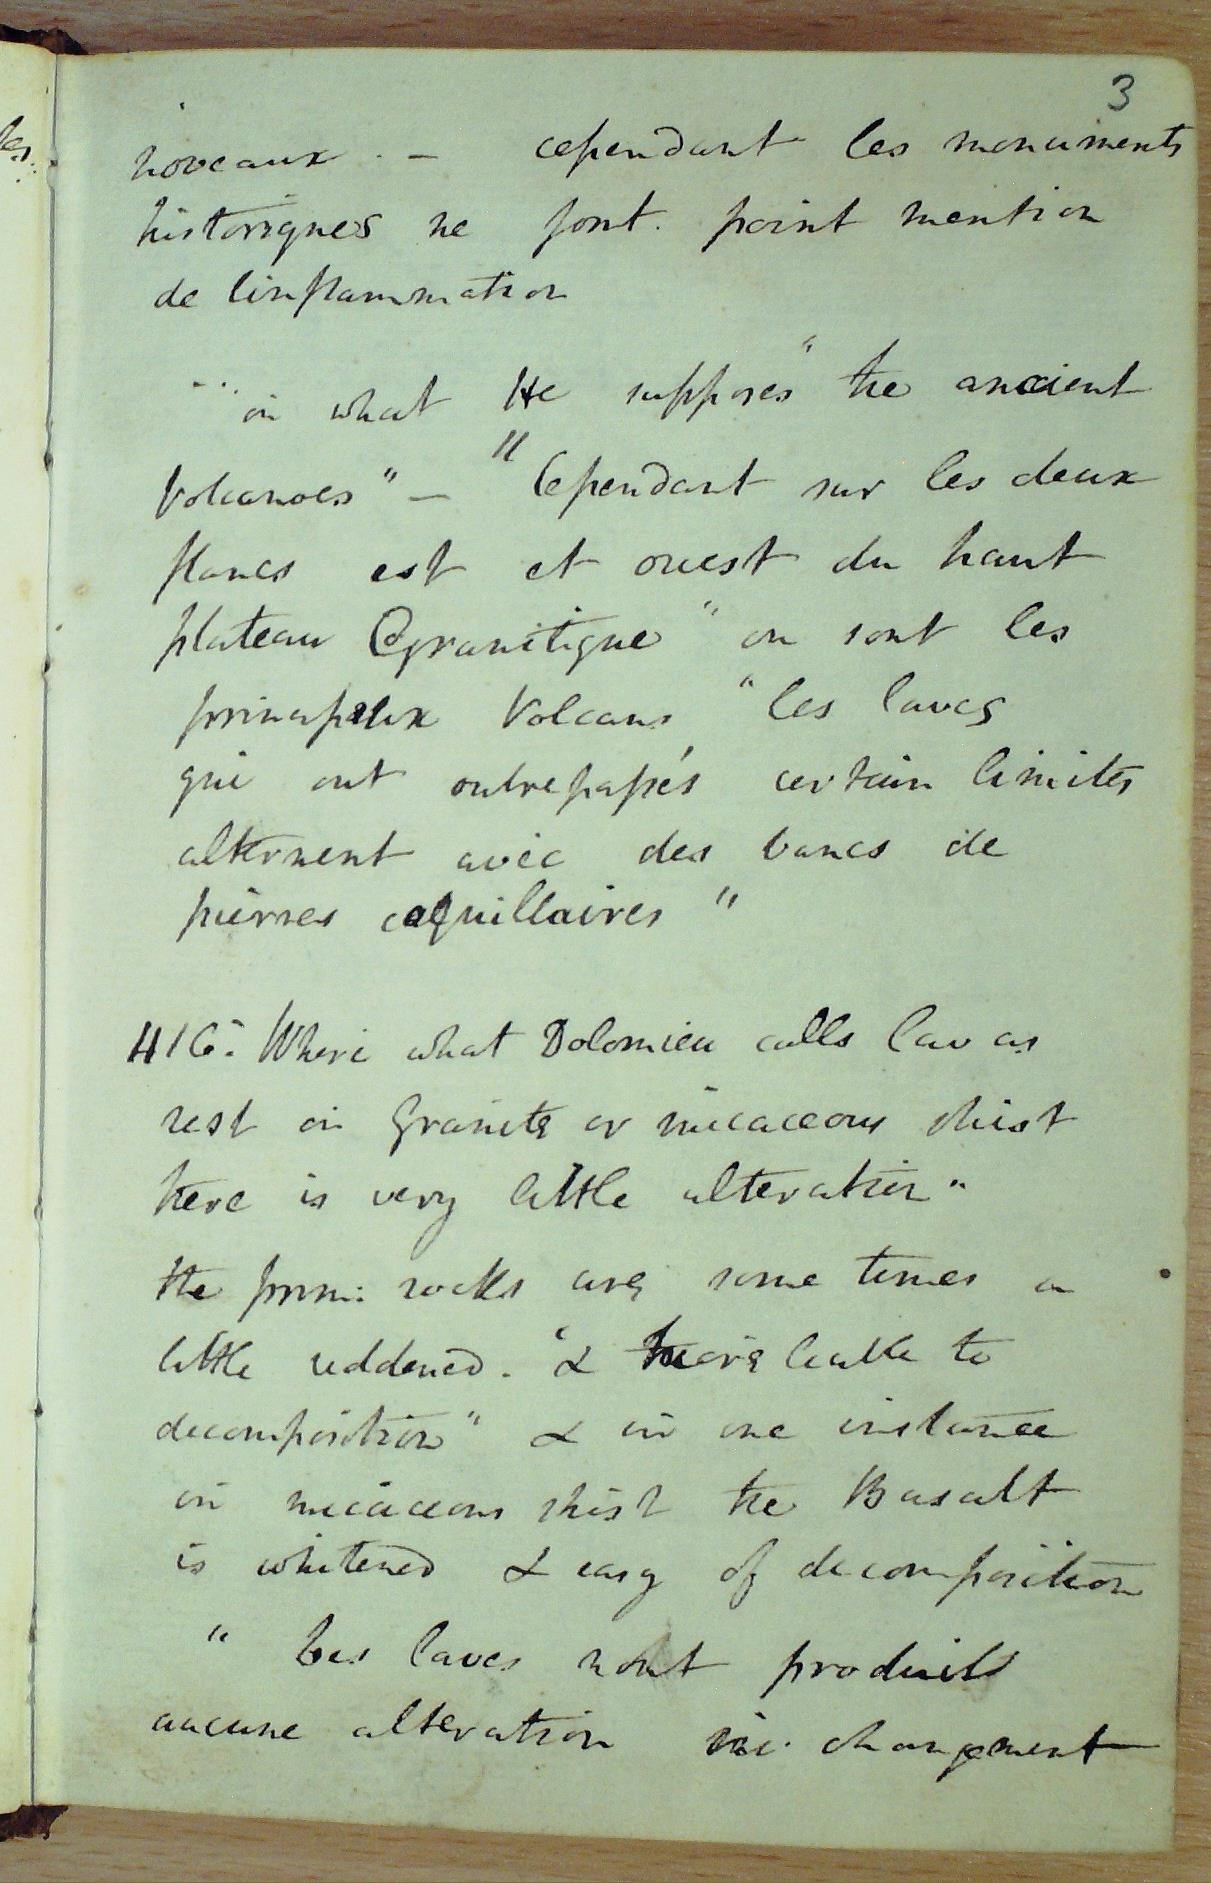 3
noveaux. — cependant les monuments
historiques ne font. point mention
de linflammation
" in what He supposes " the ancient
Volcanoes " — " Cependant sur les deux
flancs est et ouest du haut
plateau Granitique " ou sont les
principaux Volcans " les laves
qui ont outrepassés certain limites
alternent avec des bancs de
pierres coquillaires "
416. Where what Dolomieu calls lavas
rest on Granite or micaceous shist
there is very little alteration "
the prim: rocks are some times a
little reddened. " & more liable to
decomposition " & in one instance
on micaceous shist the Basalt
is whitened & easy of decomposition
" Les laves nont produits
aucune alteration ni changement